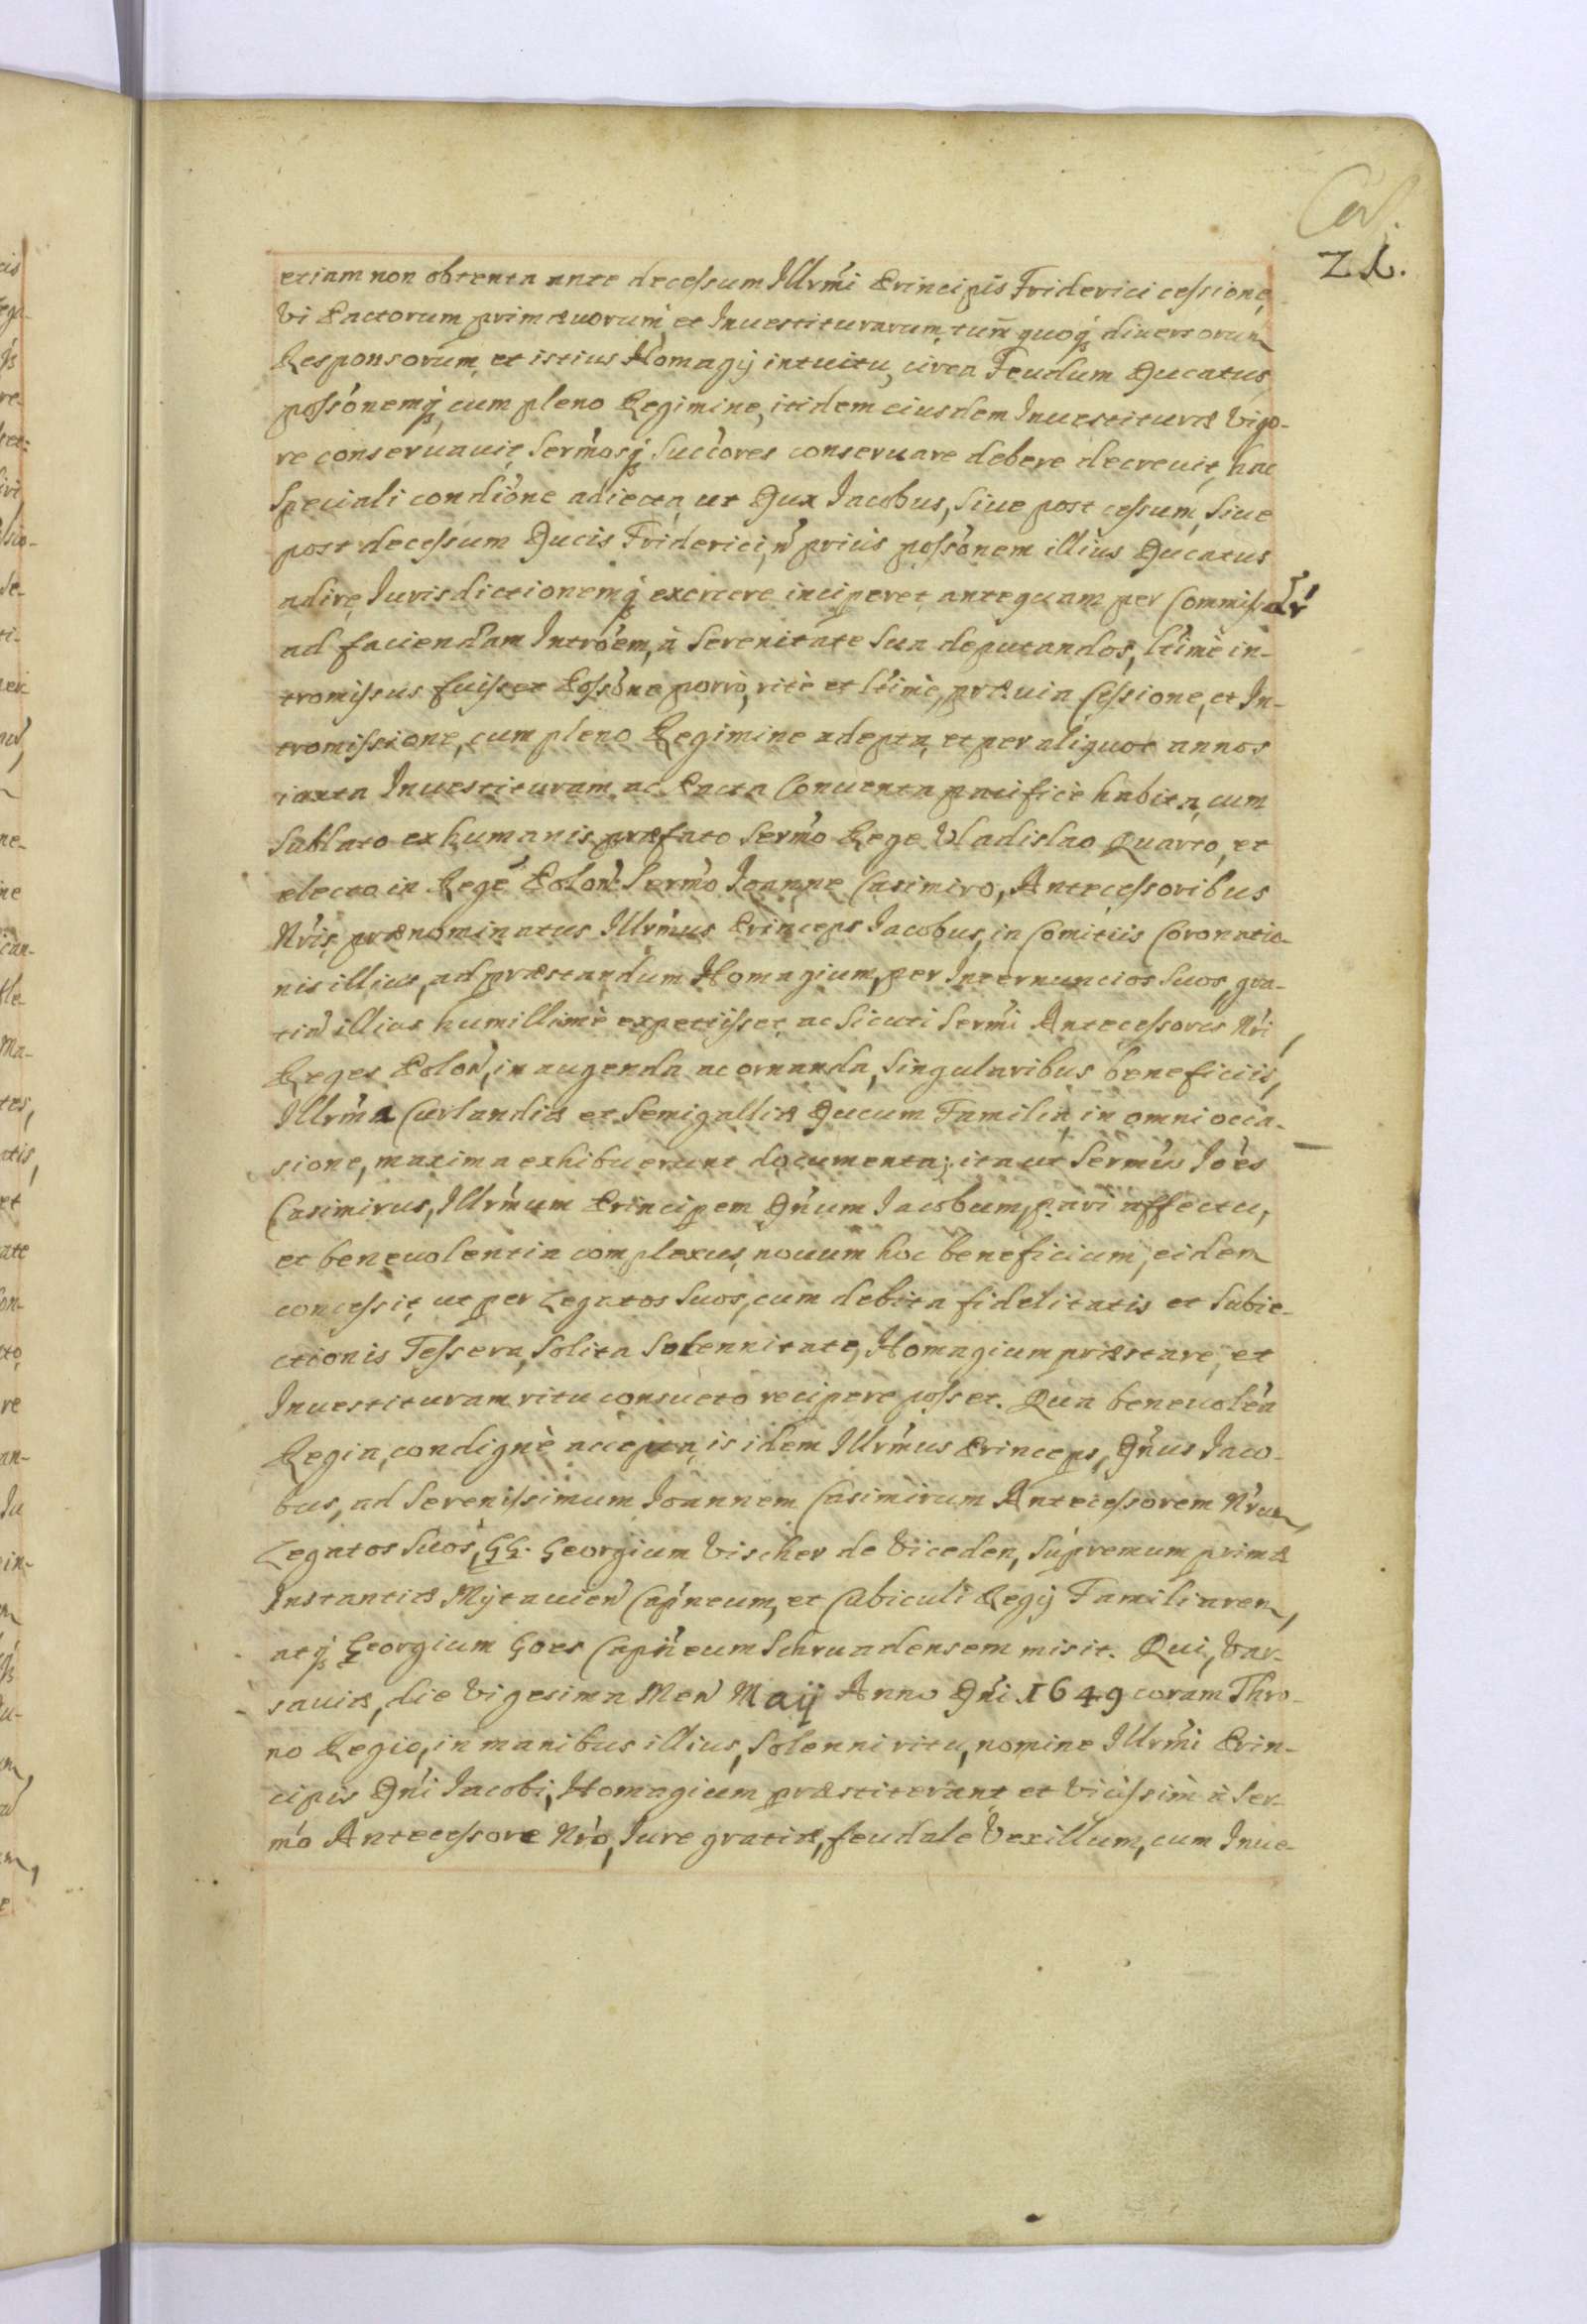 Cur.
21.
etiam non obtenta ante decessum Illrmi Principis Friderici cessione,
Vi Pactorum primæuorum, et Inuestiturarum, tum quoq diuersorum
Responsorum, et istius Homagij intuitu, circa Feudum Ducatus,
possonemq, cum pleno Regimine, itidem eiusdem Inuestituræ Vigo-
re conseruauit, Sermosq Succores conseruare debere decreuit, hac
Speciali condione adiecta, ut Dux Jacobus, Siue post cessum, Siue
post decessum Ducis Friderici, n prius possonem illius Ducatus
adire, Jurisdictionemq exercere inciperet antequam per Commiss
ad faciendam Introem, à Serenitate Sua deputandos, ltimè in-
tromissus fuisset Possone porrò, ritè et ltimè, præuia Cessione, et In-
tromissione, cum pleno Regimine adepta, et per aliquot annos
iuxta Inuestituram, ac Pacta Conuenta pacificè habita, cum
Sublato ex humanis, præfato Sermo Rege Vladislao Quarto, et
electo in Rege Polon Sermo Joanne Casimiro, Antecessoribus
Nris, prænominatus Illrmus Princeps Jacobus, in Comitiis Coronatio-
nis illius, ad præstandum Homagium, per Internuncios Suos, gra-
tin illius humillimè expetiisset, ac Sicuti Sermi Antecessores Nri,
Reges Polon, in augenda ac ornanda, Singularibus beneficiis,
Illrma Curlandiæ et Semigalliæ Ducum Familia, in omni occa-
sione, maxima exhibuerunt documenta; ita ut Sermus Joes
Casimirus, Illrmum Principem Dnum Jacobum, pari affectu,
et beneuolentia complexus, nouum hoc beneficium, eidem
concessit, ut per Legatos Suos, cum debita fidelitatis et Subie-
ctionis Tessera, Solita Solennitate, Homagium præstare, et
Inuestituram ritu consueto recipere posset. Qua beneuolea
Regia, condignè accepta, is idem Illrmus Princeps, Dnus Jaco-
bus, ad Serenissimum Joannem Casimirum Antecessorem Nrum,
Legatos Suos, GG. Georgium Vischer de Viceden, Supremum primæ
Instantiæ Mytauien Capneum, et Cubiculi Regij Familiarem,
atq Georgium Goes Capneum Schruadensem misit. Qui, Var-
sauiæ, die Vigesima Men Maij Anno Dni 1649 coram Thro-
no Regio, in manibus illius, Solenni ritu, nomine Illrmi Prin-
cipis Dni Jacobi, Homagium præstiterant et Vicissim à Ser-
mo Antecessore Nro, Jure gratiæ, feudale Vexillum, cum Inue-